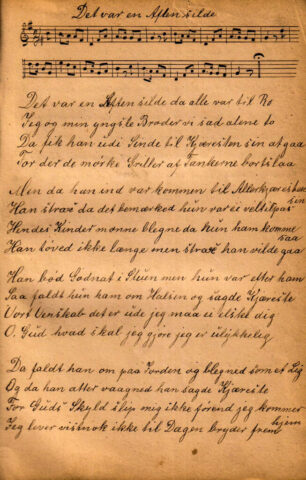 Det var en Aften silde
Det var en Aften silde da alle var til Ro
Jeg og min yngste Broder vi sad alene to
Da fik han udi Sinde til Kjæresten sin at gaa
For der de mörke Griller af Tankerne bortslaa
Men da han ind var kommen til Allerkjæresten sin
Han strax da det bemærked hun var ei veltilpas
Hendes Kinder monne blegne da hun han komme saa
Han töved ikke længe men strax han vilde gaa
Han bod Godnat i Stuen men hun var efter ham
Saa faldt hun ham om Halsen og sagde Kjæreste
Vort Venskab det er ude jeg maa ei elske dig
O, Gud hvad skal jeg gjöre jeg er ulykkelig
Da faldt han om paa Jorden og blegned som et Lig
Og da han atter vaagned han sagde Kjæreste
For Guds Skyld slip mig ikke förend jeg kommer hjem
Jeg lever vistnok ikke til Dagen bryder frem